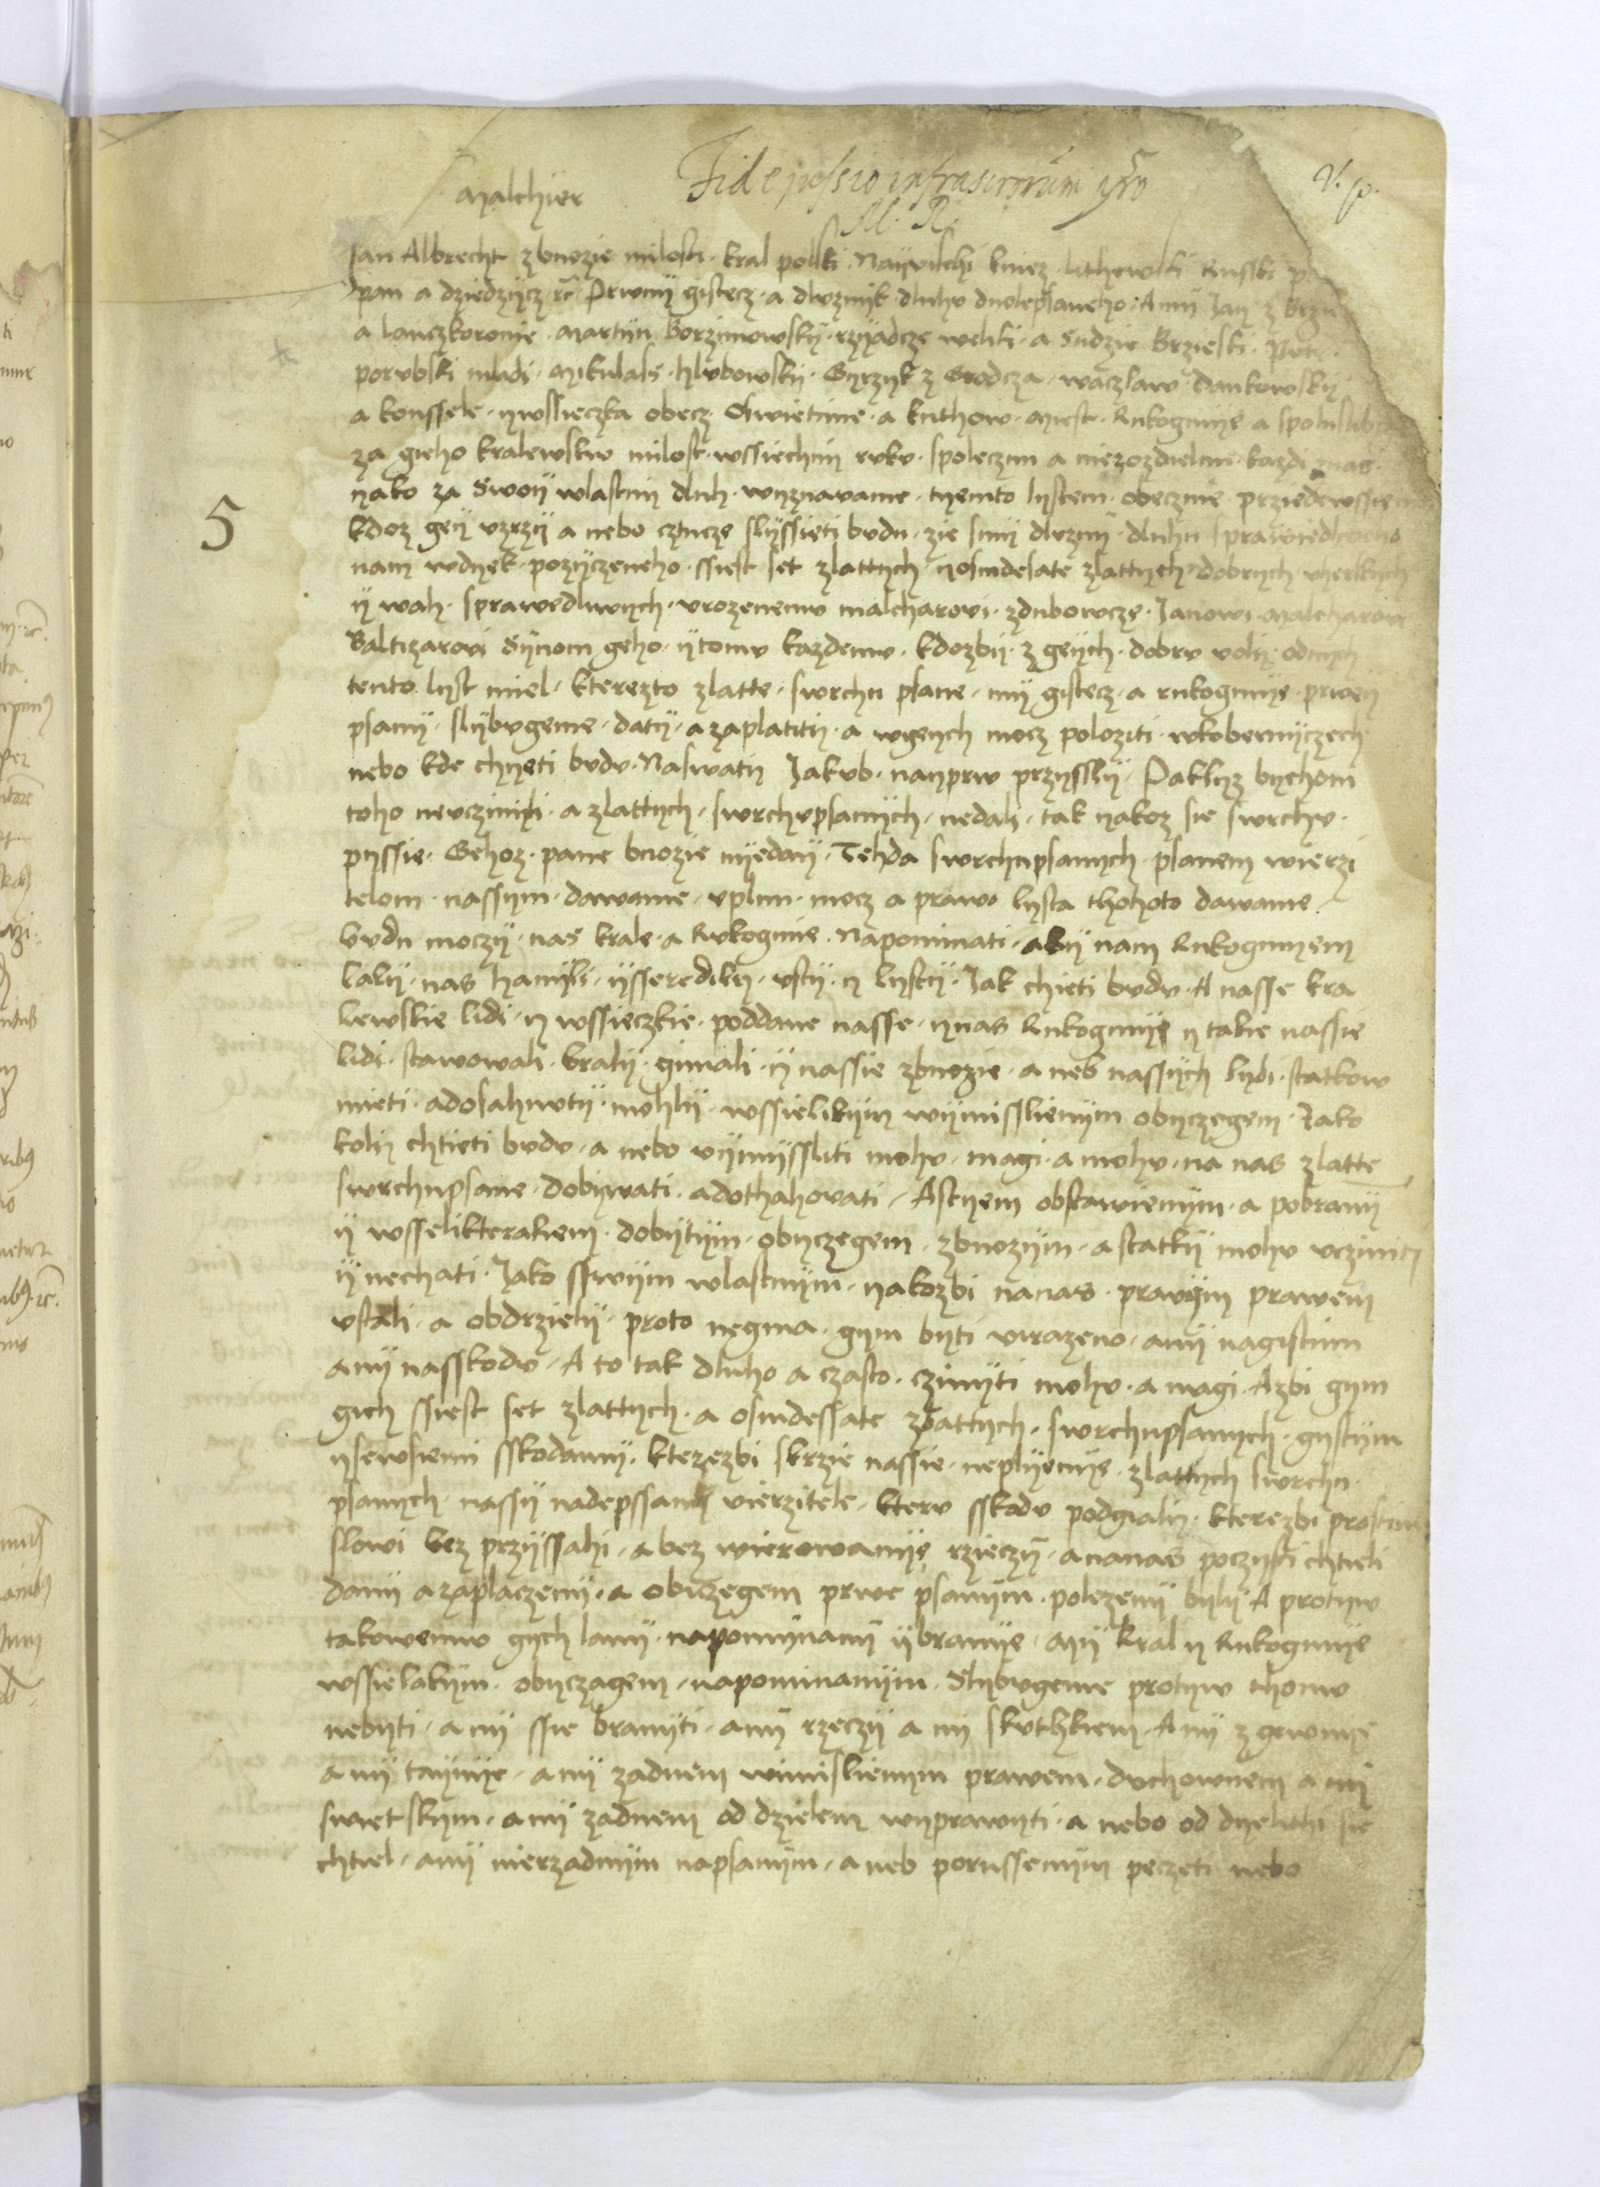 Malchier
Fidejussio infrascriptorum pro
M. R.
Jan Albrecht zbuozie milosti kral polski Naywischi kniez lithewski Russki
pan a dziedzycz rc Prwnij gistecz a dluznijk dluhu dnolepsaneho Amij Jan z Brzie
a lanczkoronie Martijn Borzimowskij rzijadcze welikі a Sudzie Brzieski Petr
porubski mladi Mikulass hlubowskij Gyrzyk z Grodcza waczlaw dankowskij
a konssele ywssieczka obecz Oswietime a kuthow miest Rukogmije a spoluslib
za gieho kralewsku milost wssiechnij ruku spoleczni a nierozdielni kazdi znas
yako za Swoij wlastnij dluh wyznavame tyemto lystem obecznie przedewssie
kdoz geij uzrzij a nebo cztucze slyssieti budu zie smij dluznij dluhu sprawiedliweho
nam wdyek pozyczeneho ssiest set zlattych yosmdesate zlattych dobrych uherskych
ij wah sprawedliwych urozenemu malcharovi zdubowcze Janowi Malcharowi
Baltizarovi Synom geho ytomu kazdemu kdozbij z geijch dobru volij odnych
tento lyst miel kterezto zlatte swrchu psane mij gistecz a rukogmije prweij
psanij slybugeme datij a zaplatitij a wgeych mocz poloziti wkobernyczech
nebo kde chtyeti budu Naswatij Jakub nayprw przysslij Paklyz bychom
toho neuczinili a zlattych swrchupsanijch nedali tak yakoz sie swrchu
pyssie Gehoz pane buozie nijedaij Tehda swrchupsanych psanem wierzi
telom nassym dawame uplnu mocz a prawo lysta thohoto dawame
budu moczij nas krale a Rukogmie Napominati abij nam Rukogmyem
lalij nas hanijli ysseredilij ustij y lystij Jak chieti budu A nasse kra
lewskie lidi y wssieczkie poddane nasse ynas Rukogmije y takie nassie
lidi stawowali bralij gimali ij nassie zbuozie a neb nassych lydi statkow
mieti adosahnutij mohlij wssielikijm wijmisslienijm obyczegem Jako
kolij chtieti budu a nebo vijmyssliti mohu magi a mohu na nas zlatte
swrchupsane dobijwati adothahovati Astyem obstawienijm a pobranij
ij wsselikterakem dobijtijm obyczegem zbuozijm a statkij mohu uczinit
ij nechati Jako sswijm wlastnijm yakozbi nanas pravijm prawem
ustali a obdrzielij proto negma gym byti urazeno anij nagistim
anij nasskodu A to tak dluho a czasto czinijti mohu a magi Azbi gym
gich ssiest set zlattych a osmdessate zlattych swrchupsanych gystym
ysewsiemi sskodamij kterezbi skrzie nassie neplnyenije zlattych swrchu
psanych nassij nadepssanij vierzitele kteru sskodu podgialij kterezbi prostim
slowi bez przyssahi a bez wierowanije rzieczij ananas poczysti chtieli
danij azaplaczenij a obiczegem prwe psanijm polezenij bylij A protyw
takowemu gych lanij napominanij ijbranije Mij Kral y Rukogmije
wssielakijm obyczagem napominanijm Slybugeme protyw thomu
nebyti anij sie branijti anij rzeczij a ni skuthkiem Anij z gewnije
anij taijnije anij zadnem wimislienym prawem duchownem a nij
swietskym anij zadnem od dzielem wyprawijti a nebo od dyeliti sie
chtiel anij nierzadnijm napsanijm aneb porussenijm peczeti nebo
5